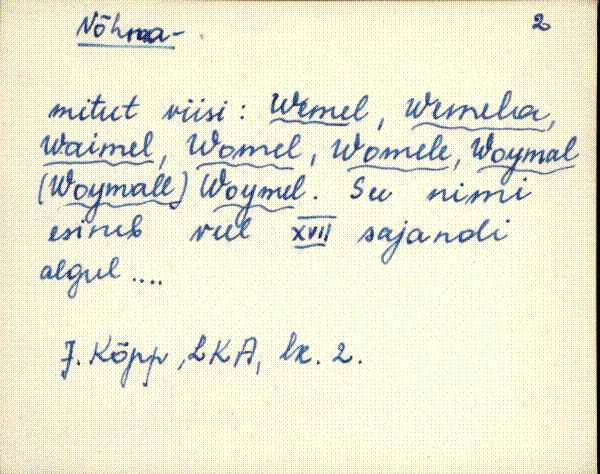 Nõhma- 2
mitut viisi: Wemel, Wemelia,
Waimel, Womel, Womele, Woymal
(Woymall) Woymel. See nimi
esineb veel XVII sajandi
algul ....
J. Kõpp, LKA, lk. 2.